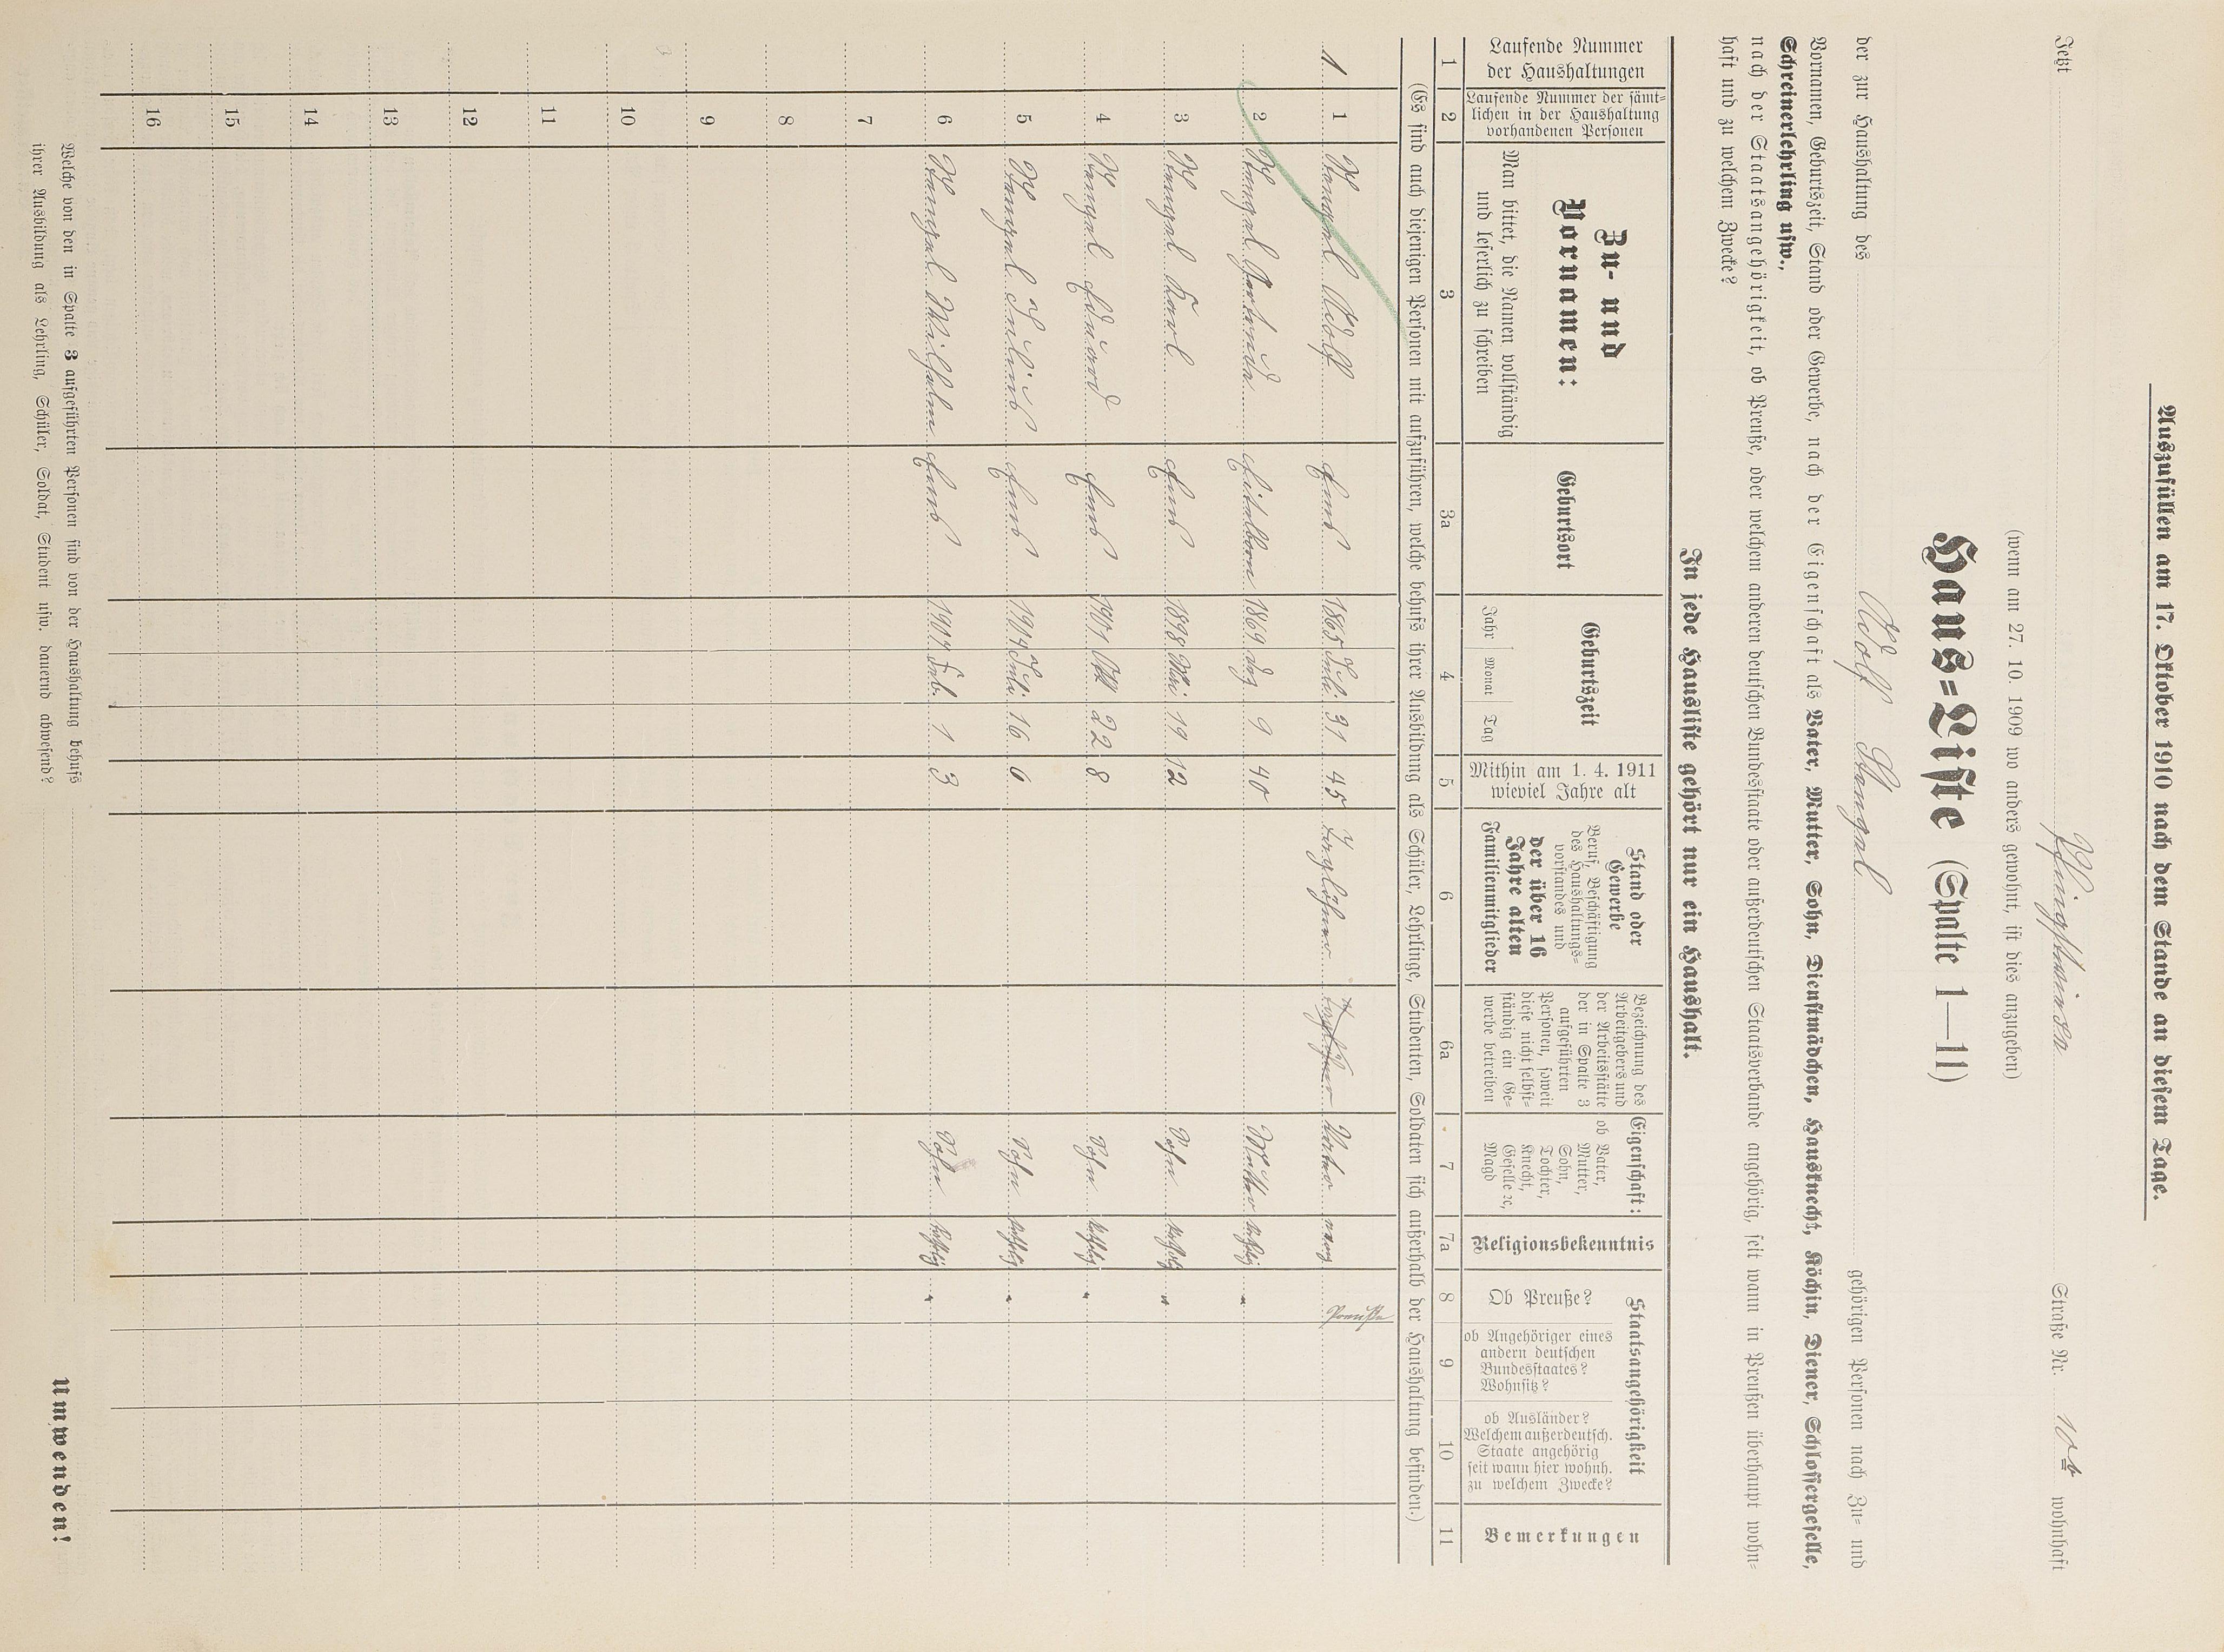 Auszufüllen am 17. Oktober 1910 nach dem Stande an diesem Tage.
Jetzt Pfingstweide Straße Nr. 10 b wohnhaft
(wenn am 27. 10. 1909 wo anders gewohnt, ist dies anzugeben)
Haus=Liste (Spalte 1—11)
der zur Haushaltung des Adolf Stengel gehörigen Personen nach Zu= und
Vornamen, Geburtszeit, Stand oder Gewerbe, nach der Eigenschaft als Vater, Mutter, Sohn, Dienstmädchen, Hausknecht, Köchin, Diener, Schlossergeselle,
Schreinerlehrling usw.,
nach der Staatsangehörigkeit, ob Preuße, oder welchem anderen deutschen Bundesstaate oder außerdeutschen Staatsverbande angehörig, seit wann in Preußen überhaupt wohn=
haft und zu welchem Zwecke?
In jede Hausliste gehört nur ein Haushalt.
Laufende Nummer
der Haushaltungen
Laufende Nummer der sämt=
lichen in der Haushaltung
vorhandenen Personen
Zu- und
Vornamen:
Man bittet, die Namen vollständig
und leserlich zu schreiben
Geburtsort
Geburtszeit
Jahr Monat Tag
Mithin am 1. 4. 1911
wieviel Jahre alt
Stand oder
Gewerbe
Beruf, Beschäftigung
des Haushaltungs=
vorstandes und
der über 16
Jahre alten
Familienmitglieder
Bezeichnung des
Arbeitgebers und
der Arbeitsstätte
der in Spalte 3
aufgeführten
Personen, soweit
diese nicht selbst=
ständig ein Ge=
werbe betreiben
Eigenschaft:
ob Vater,
Mutter,
Sohn,
Tochter,
Knecht,
Geselle ec,
Magd
Religionsbekenntnis
Staatsangehörigkeit
Ob Preuße?
ob Angehöriger eines
andern deutschen
Bundesstaates?
Wohnsitz?
ob Ausländer?
Welchem außerdeutsch.
Staate angehörig
seit wann hier wohnh.
zu welchem Zwecke?
Bemerkungen
1 2 3 3a 4 5 6 6a 7 7a 8 9 10 11
(Es sind auch diejenigen Personen mit aufzuführen, welche behufs ihrer Ausbildung als Schüler, Lehrlinge, Studenten, Soldaten sich außerhalb der Haushaltung befinden.)
1 1 Stengel Adolf Ems 1865 Juli 31 45 Taglöhner Taglöhner Vater evang Preuße
2 Stengel Gertrude Eitelborn 1869 9 40 Mutter kathlg "
3 Stengel Karl Ems 1898 Mai 19 12 Sohn kathlg "
4 Stengel Eduard Ems 1901 Okt 22 8 Sohn kathlg "
5 Stengel Julius Ems 1904 Juli 16 6 Sohn kathlg "
6 Stengel Wilhelm Ems 1907 Feb. 1 3 Sohn kathlg "
7
8
9
10
11
12
13
14
15
16
Welche von den in Spalte 3 aufgeführten Personen sind von der Haushaltung behufs
ihrer Ausbildung als Lehrling, Schüler, Soldat, Student usw. dauernd abwesend?
Umwenden!